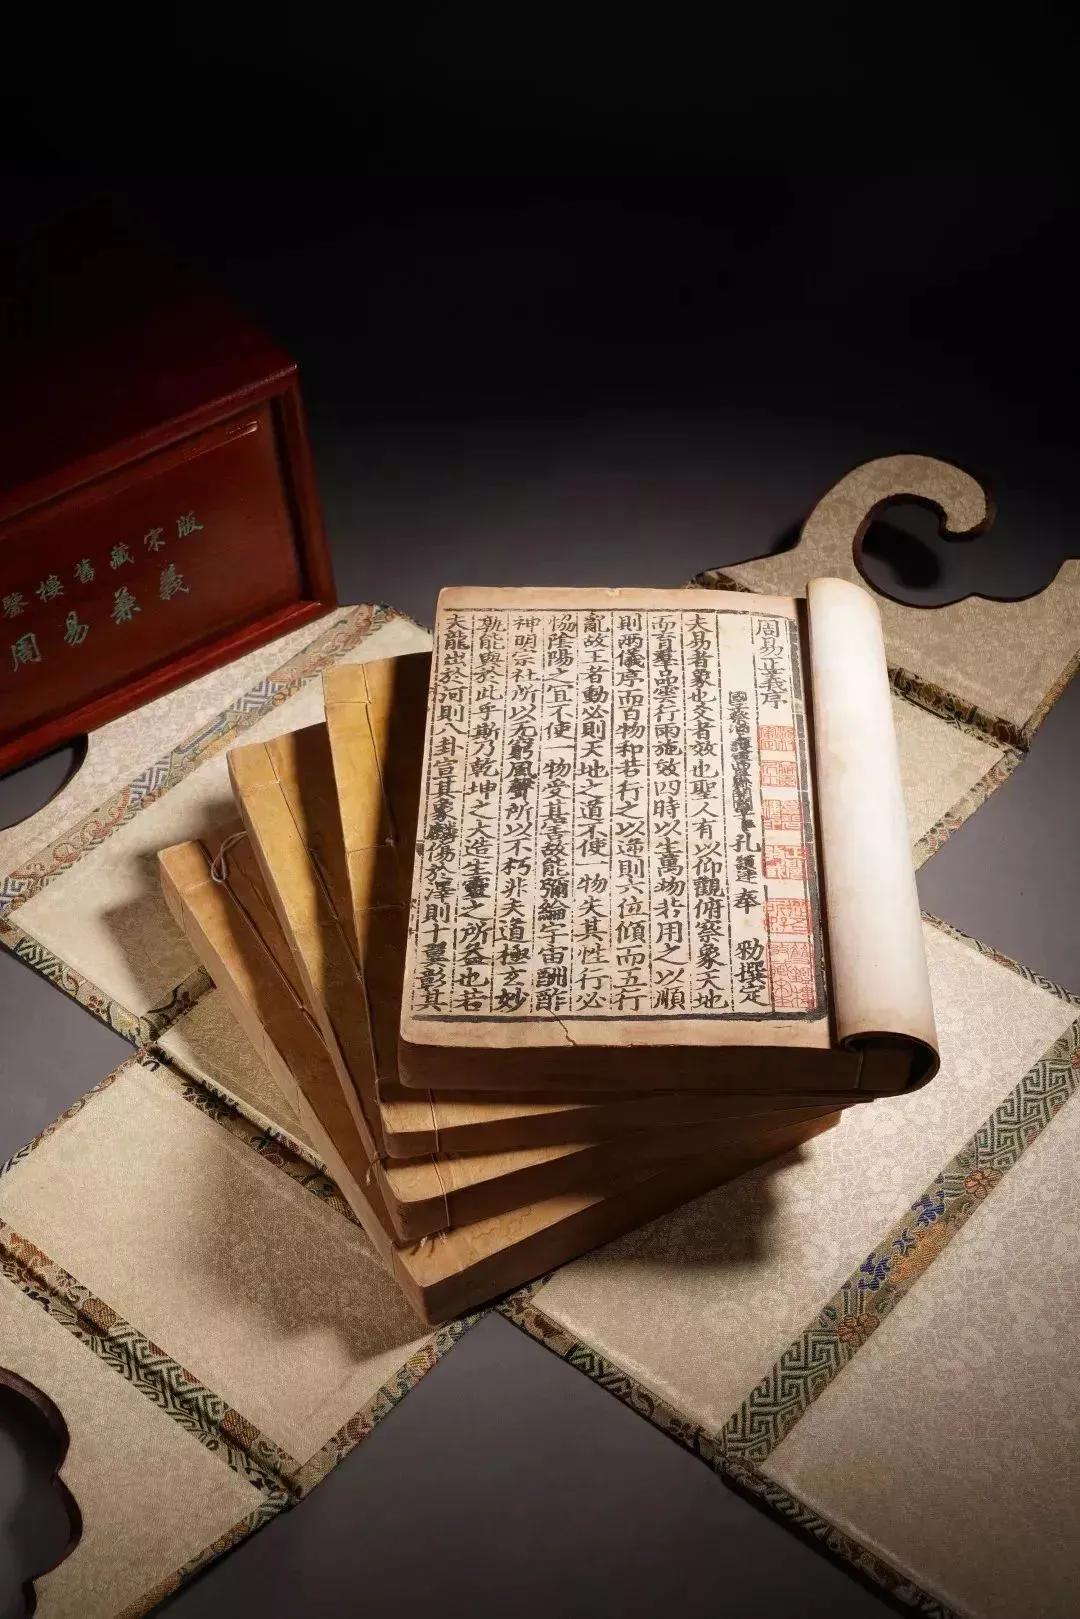 鑒樓舊藏宋版
周易兼義
周易正義序
孔穎達奉 勑撰定
夫易者象也爻者效也聖人有以仰觀俯察象天地
而育羣品雲行雨施效四時以生萬物若用之以順
則兩儀序而百物和若行之以逆則六位傾而五行
亂故王者動必則天地之道不使一物失其性行必
恊陰陽之宜不使一物受其害故能彌綸宇宙酬酢
神明宗社所以无窮風聲所以不朽非夫道極玄妙
孰能與於此乎斯乃乾坤之大造生靈之所益也若
夫龍出於河則八卦宣其象麟傷於澤則十翼彰其